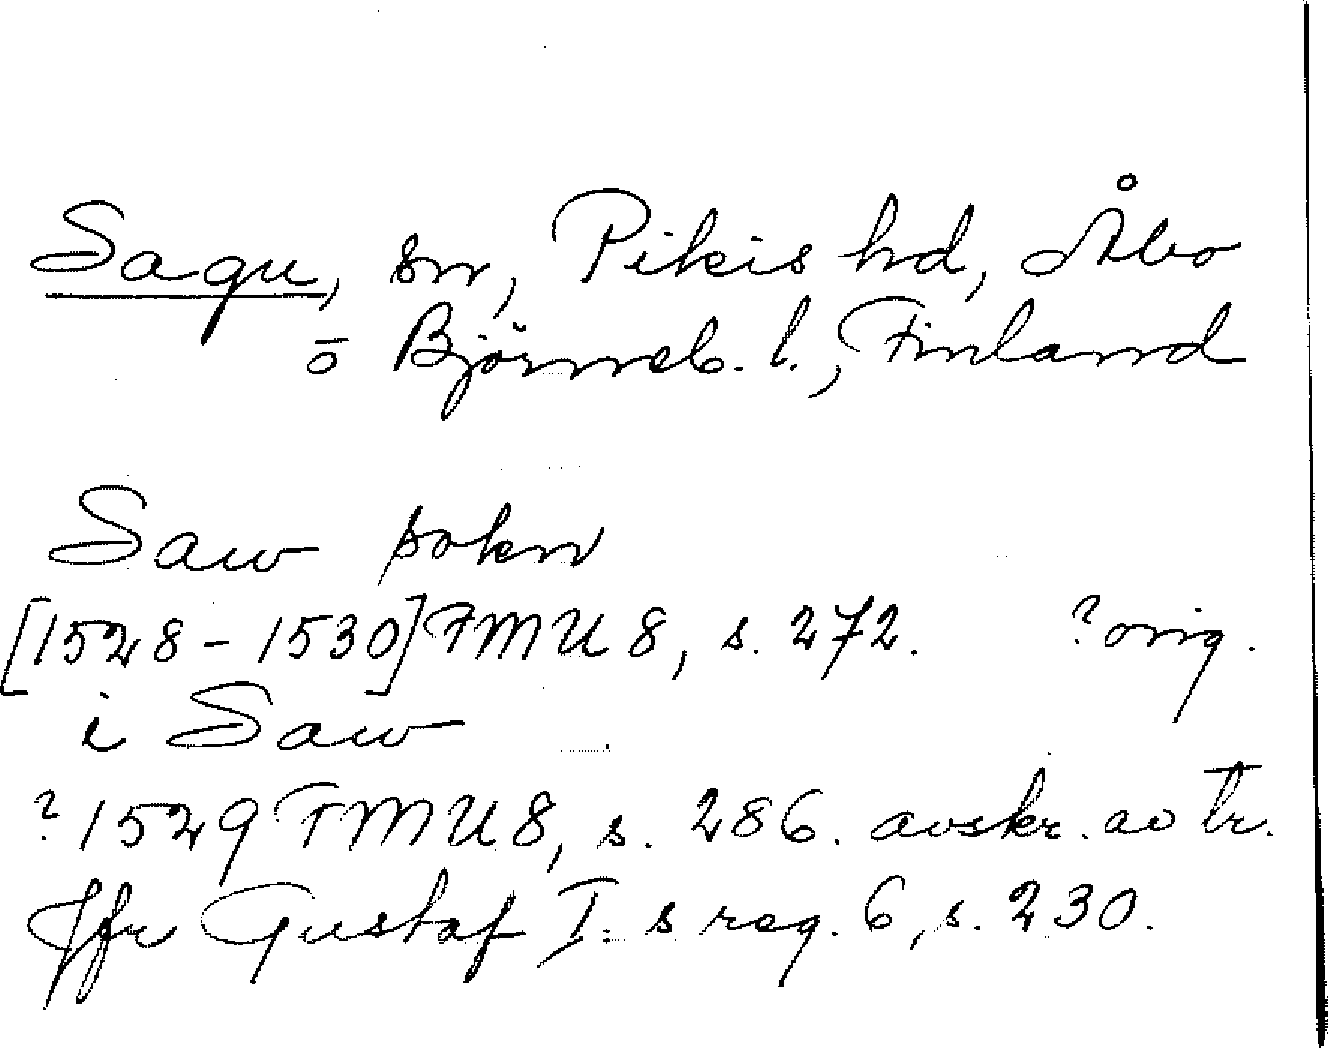 Sagu, sn, Pikis hd, Åbo
o Björneb. l., Finland
Saw sokn
[1528-1530] FMU 8, s. 272. ? orig.
i Saw
? 1529 FMU 8, s. 286. avskr. av tr.
Jfr Gustaf I:s reg. 6, s. 230.